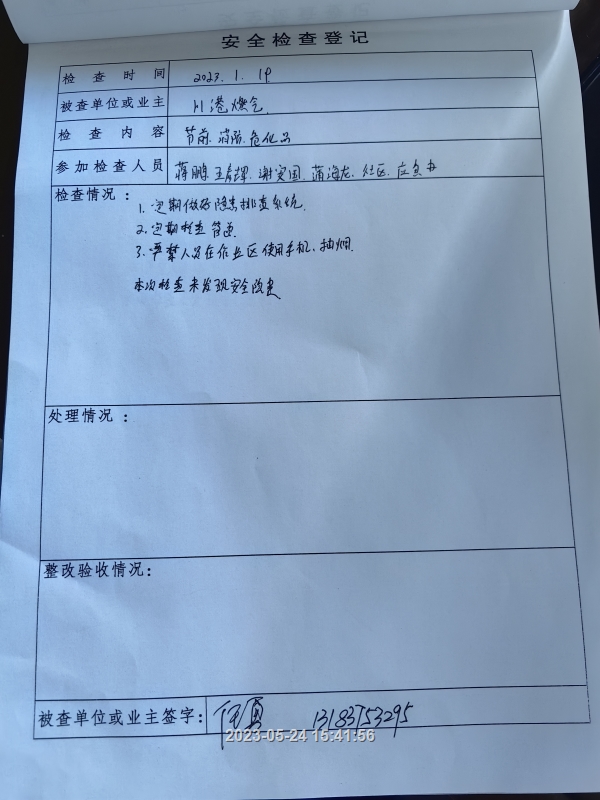 安全检查登记
检查时间 2023.1.19
被查单位或业主 川港燃气
检查内容 节前.消防.危化品
参加检查人员 蒋鹏 谢安国 蒲海龙 社区
检查情况：
1. 定期做好隐患排查系统.
2. 定期检查管道
3. 严禁人员在作业区使用手机、抽烟.
本次检查未发现安全隐患
处理情况：
整改验收情况：
被查单位或业主签字： 13183753295
2023-05-24 15:41:56